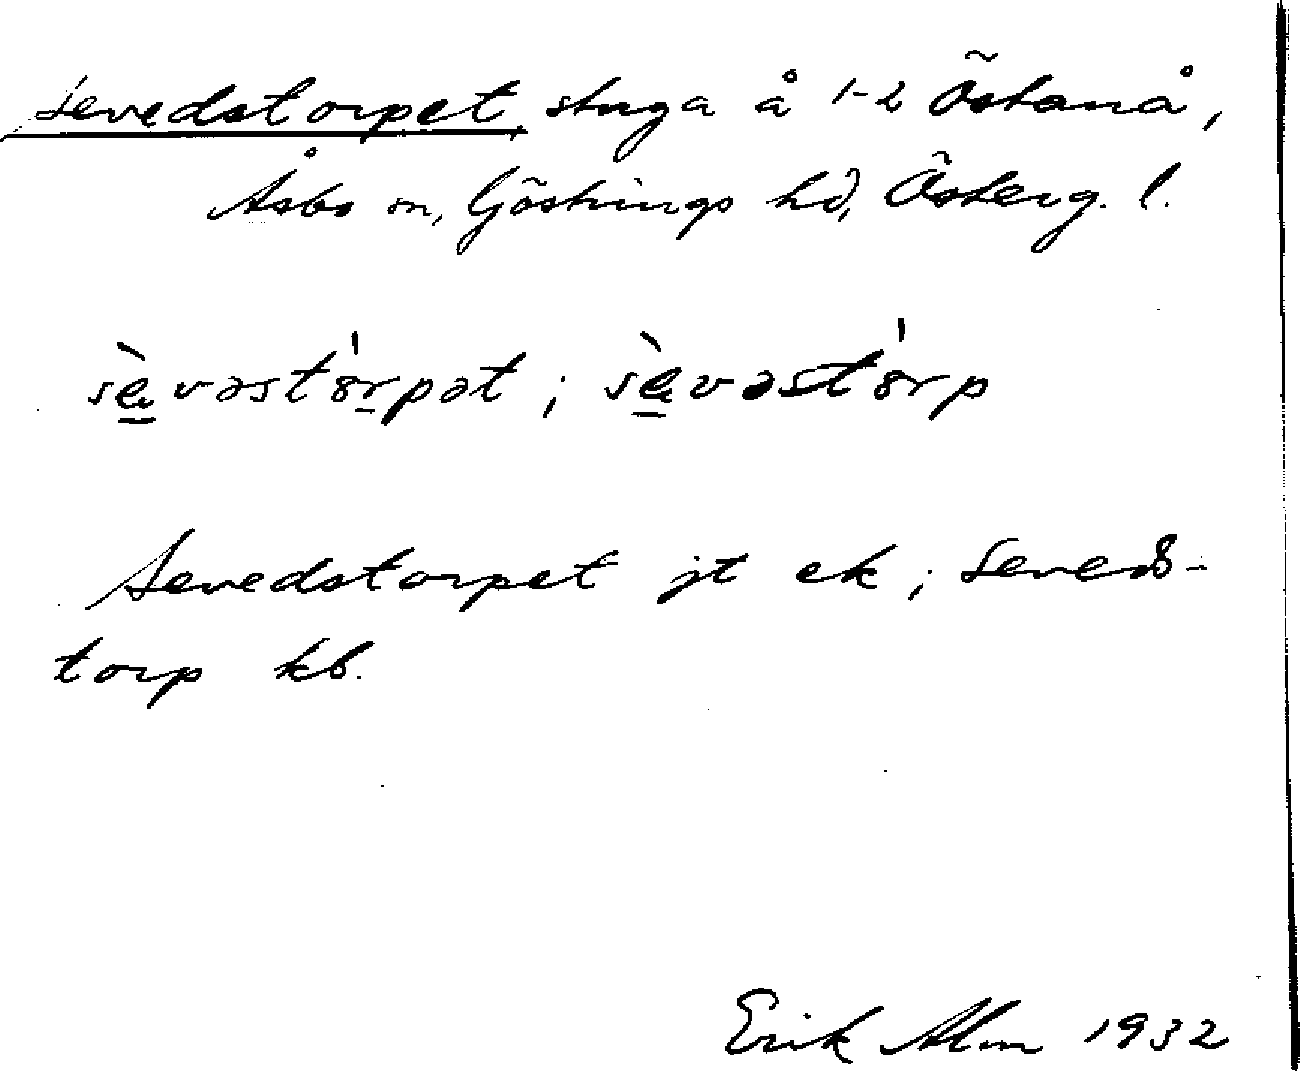 Sevedstorpet, stuga å 1-2 Östanå,
Åsbo sn, Göstrings hd, Österg. l.
sèvəstórpət ; sèvəstórp
Sevedstorpet jt ek ; Seveds-
torp kb.
Erik Alm 1932